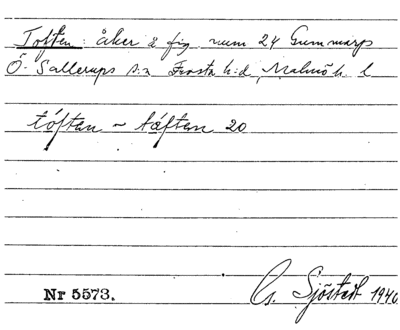 Toften: åker å fig num 24 Gummarps
Ö. Sallerups s:n Frosta h:d Malmöh. l
tóften ~ táften 20
Nr 5573.
G. Sjöstedt 1940